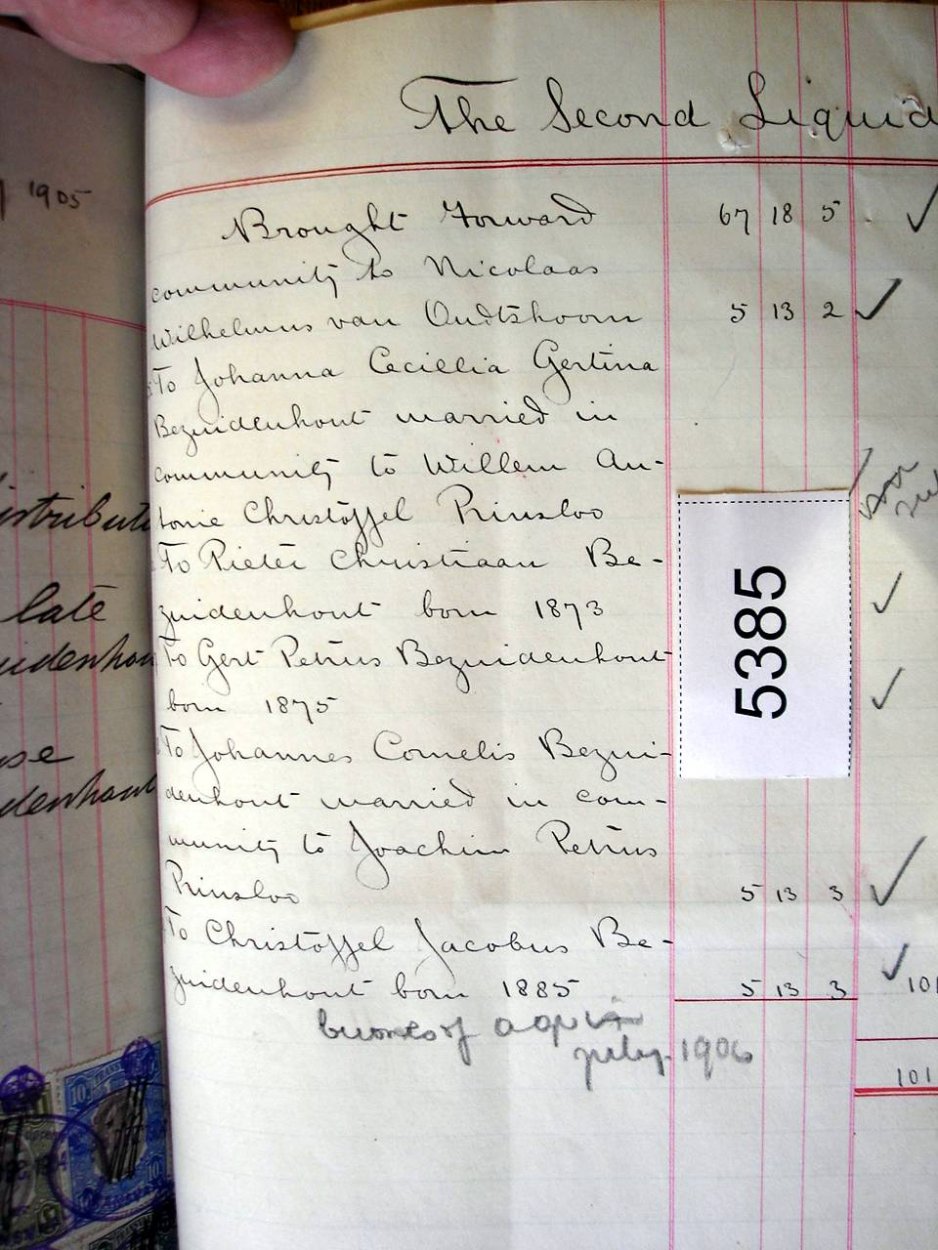 1905
istribut
late
uidenhou
se
denhout
The Second Liquid
Brought Forward 67 18 5
community to Nicolaas
Wilhelmus van Oudtshoorn 5 13 2
To Johanna Cecillia Gertina
Bezuidenhout married in
community to Willem An-
tonie Christoffel Prinsloo
To Pieter Christiaan Be-
zuidenhout born 1873
To Gert Petrus Bezuidenhout
born 1875
To Johannes Cornelis Bezui-
denhout married in com-
munity to Joachim Petrus
Prinsloo 5 13 3
To Christoffel Jacobus Be-
zuidenhout born 1885 5 13 3 101
july 1906
101
5385
10